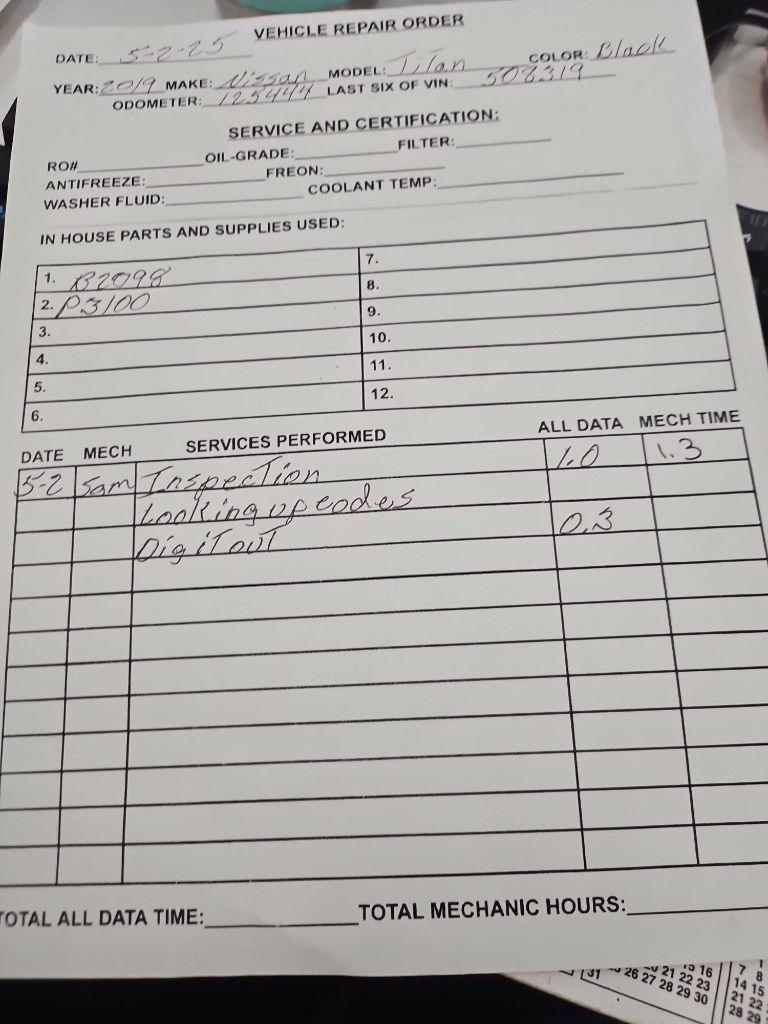 VEHICLE REPAIR ORDER
DATE: 5-2-25
YEAR: 2019 MAKE: Nissan MODEL: Titan COLOR: Black
ODOMETER: 125444 LAST SIX OF VIN: 508319
SERVICE AND CERTIFICATION:
RO# OIL-GRADE: FILTER:
ANTIFREEZE: FREON:
WASHER FLUID: COOLANT TEMP:
IN HOUSE PARTS AND SUPPLIES USED:
1. B2098 7.
2. P3100 8.
3. 9.
4. 10.
5. 11.
6. 12.
DATE MECH SERVICES PERFORMED ALL DATA MECH TIME
5-2 Sam Inspection 1.0 1.3
Looking up codes
Dig it out 0.3
TOTAL ALL DATA TIME: TOTAL MECHANIC HOURS:
15 16
21 22 23
31 26 27 28 29 30
1
7 8
14 15
21 22
28 29